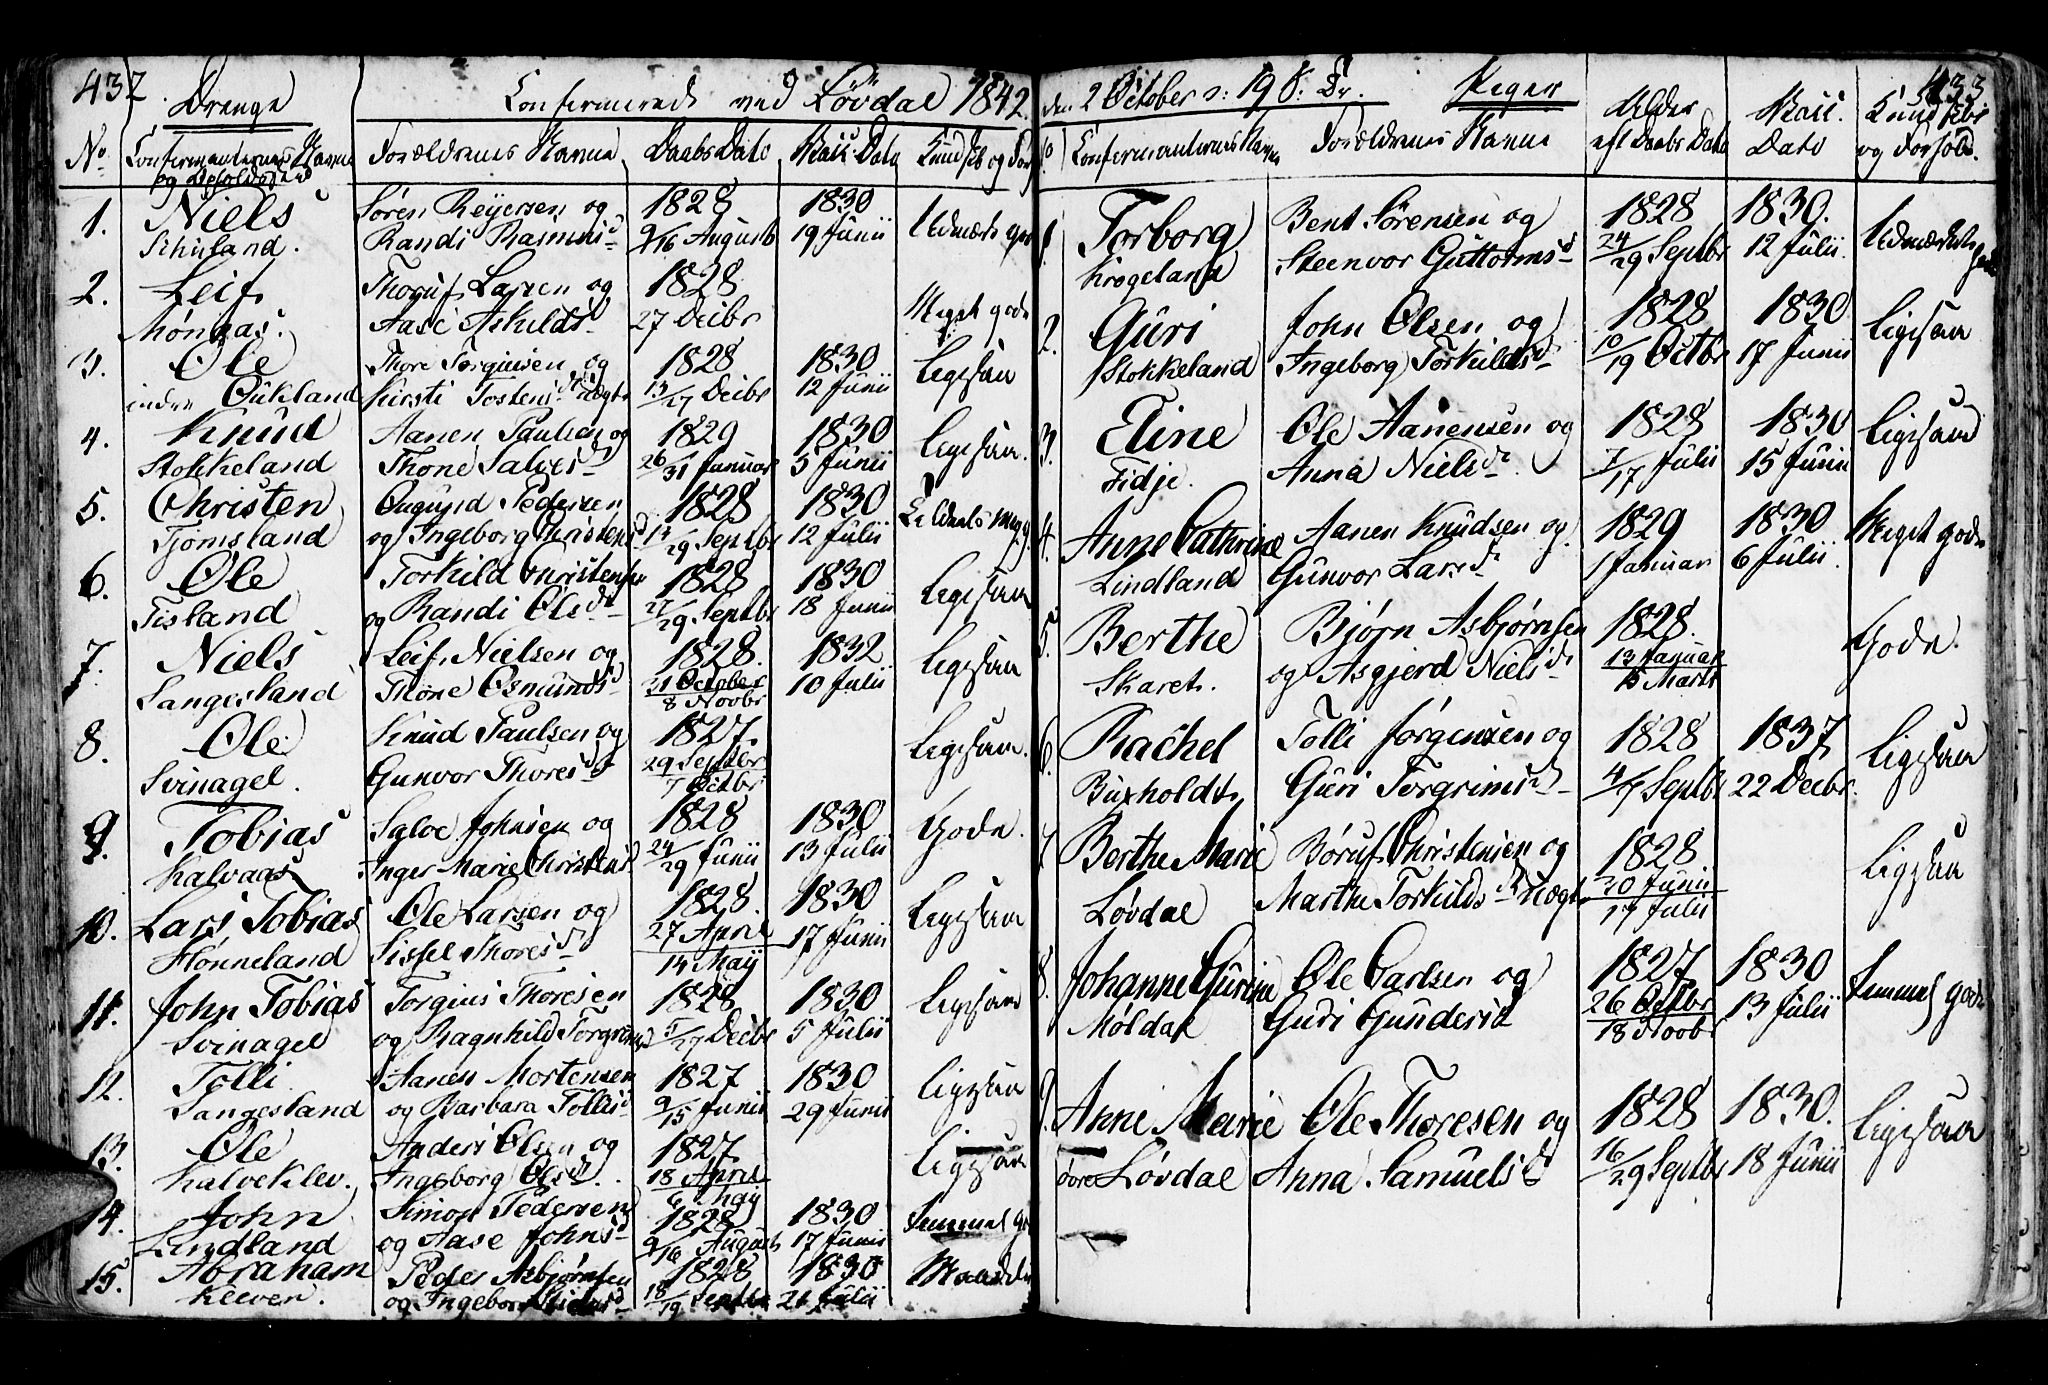 432
Drenge
Confirmerede ved Løvdal 1842.
No. Confirmanternes Navne og Opholdssted Forældrenes Navne Daabs Dato Vacc. Dato Kundsk og For
1. Niels Søren Reyersen og 1828 1830 Udmærk god
Schuland. Randi Rasmusd 9/16 August 19 Junii
2. Leif Thoruf Larsen og 1828 Meget gode
Mønnas. Aase Askildsd 27 Decbr
3. Ole Thore Torguisen og 1828 1830 Ligesaa
indre Øukland Kirsti Tostensd 13/27 Decbr 12 Junii
4. Knud Aanen Paulsen og 1829 1830 Ligesaa.
Stokkeland Thone Salvesd 26/31 Januar 5 Junii
5. Christen Ougund Pedersen 1828 1830
Tjomsland og Ingeborg Christensd 14/29 Septbr 12 Julii
6. Ole Torkild Christensen 1828 1830 Ligesaa
Tisland og Randi Olsd 27/29 Septbr 18 Junii
7. Niels Leif Nielsen og 1828. 1832 Ligesaa
Sangesland Thone Osmundsd 31 October 8 Novbr 10 Julii
8. Ole Knud Paulsen og 1827. Ligesaa.
Svinagel. Gunvor Thoresd 29 Septbr 7 Octbr
9. Tobias Salve Johnsen og 1828 1830 Gode.
Kalvaas Inger Marie Christensd 24/29 Junii 13 Julii
10. Lars Tobias Ole Larsen og 1828. 1830 Ligesaa
Hønneland Sissel Thoresd 27 April 14 Maij 17 Junii
11. John Tobias Torgius Thoresen 1828 1830 Ligesaa
Svinagel og Ragnhild Torgrimsd 5/27 Decbr 5 Julii
12. Tolli Aanen Mortensen 1827 1830 Ligesaa
Sangesland og Barbara Tollisd 9/15 Junii 29 Junii
13. Ole Anders Olsen og 1827. Ligesaa
Kalveklev. Ingeborg Olsd. 18 April 6 Maij
14. John Simon Pedersen 1828 1830 Temmel god
Lindland og Aase Johnsd 9/16 August 17 Junii
15. Abraham Peder Asbjørnsen 1828 1830 Maadelig
Kleven. og Ingeborg 18/19 Septbr 21 Julii
433
den 2 October s: 19 S: Tr. Piger
Confirmanternes Navne Forældrenes Navne Alder eft Daabs Dato Vacc. Dato Kundskbr og Forhold.
1. Torborg Bent Sørensen og 1828 1830. Udmærket gode
Krogeland Steenvor Guttormsd 24/29 Septbr 12 Julii
2. Guri John Olsen og 1828 1830 Ligesaa
Stokkeland Ingeborg Torkildsd 10/19 Octbr 17 Junii
3. Eline Ole Aanensen og 1828 1830 Ligesaa
Fidje. Anna Nielsd. 7/17 Julii 15 Junii
4. Anne Cathrine Aanen Knudsen og 1829 1830 Meget gode
Lindland Gunvor Larsd 1 Januar 6 Julii.
5. Berthe Bjørn Asbjørnsen 1828. Gode.
Skaret. og Asgjerd Nielsd 13 Januar 15 Marts
6. Rachel Tolli Jørgensen og 1828 1837 Ligesaa
Buxholdt Guri Torgrimsd 4/7 Septbr 22 Decbr.
7. Berthe Marie Børuf Christensen og 1828. Ligesaa
Løvdal Marthe Torkildsd 30 Junii 17 Julii
8. Johanne Gurine Ole Carlsen og 1827 1830 Temmel gode
Moldal Guri Gundersd 26 Octbr 18 Novbr 13 Julii
9. Anne Marie Ole Thoresen og 1828 1830. Ligesaa
øvre Løvdal Anna Samuelsd 16/29 Septbr 18 Junii